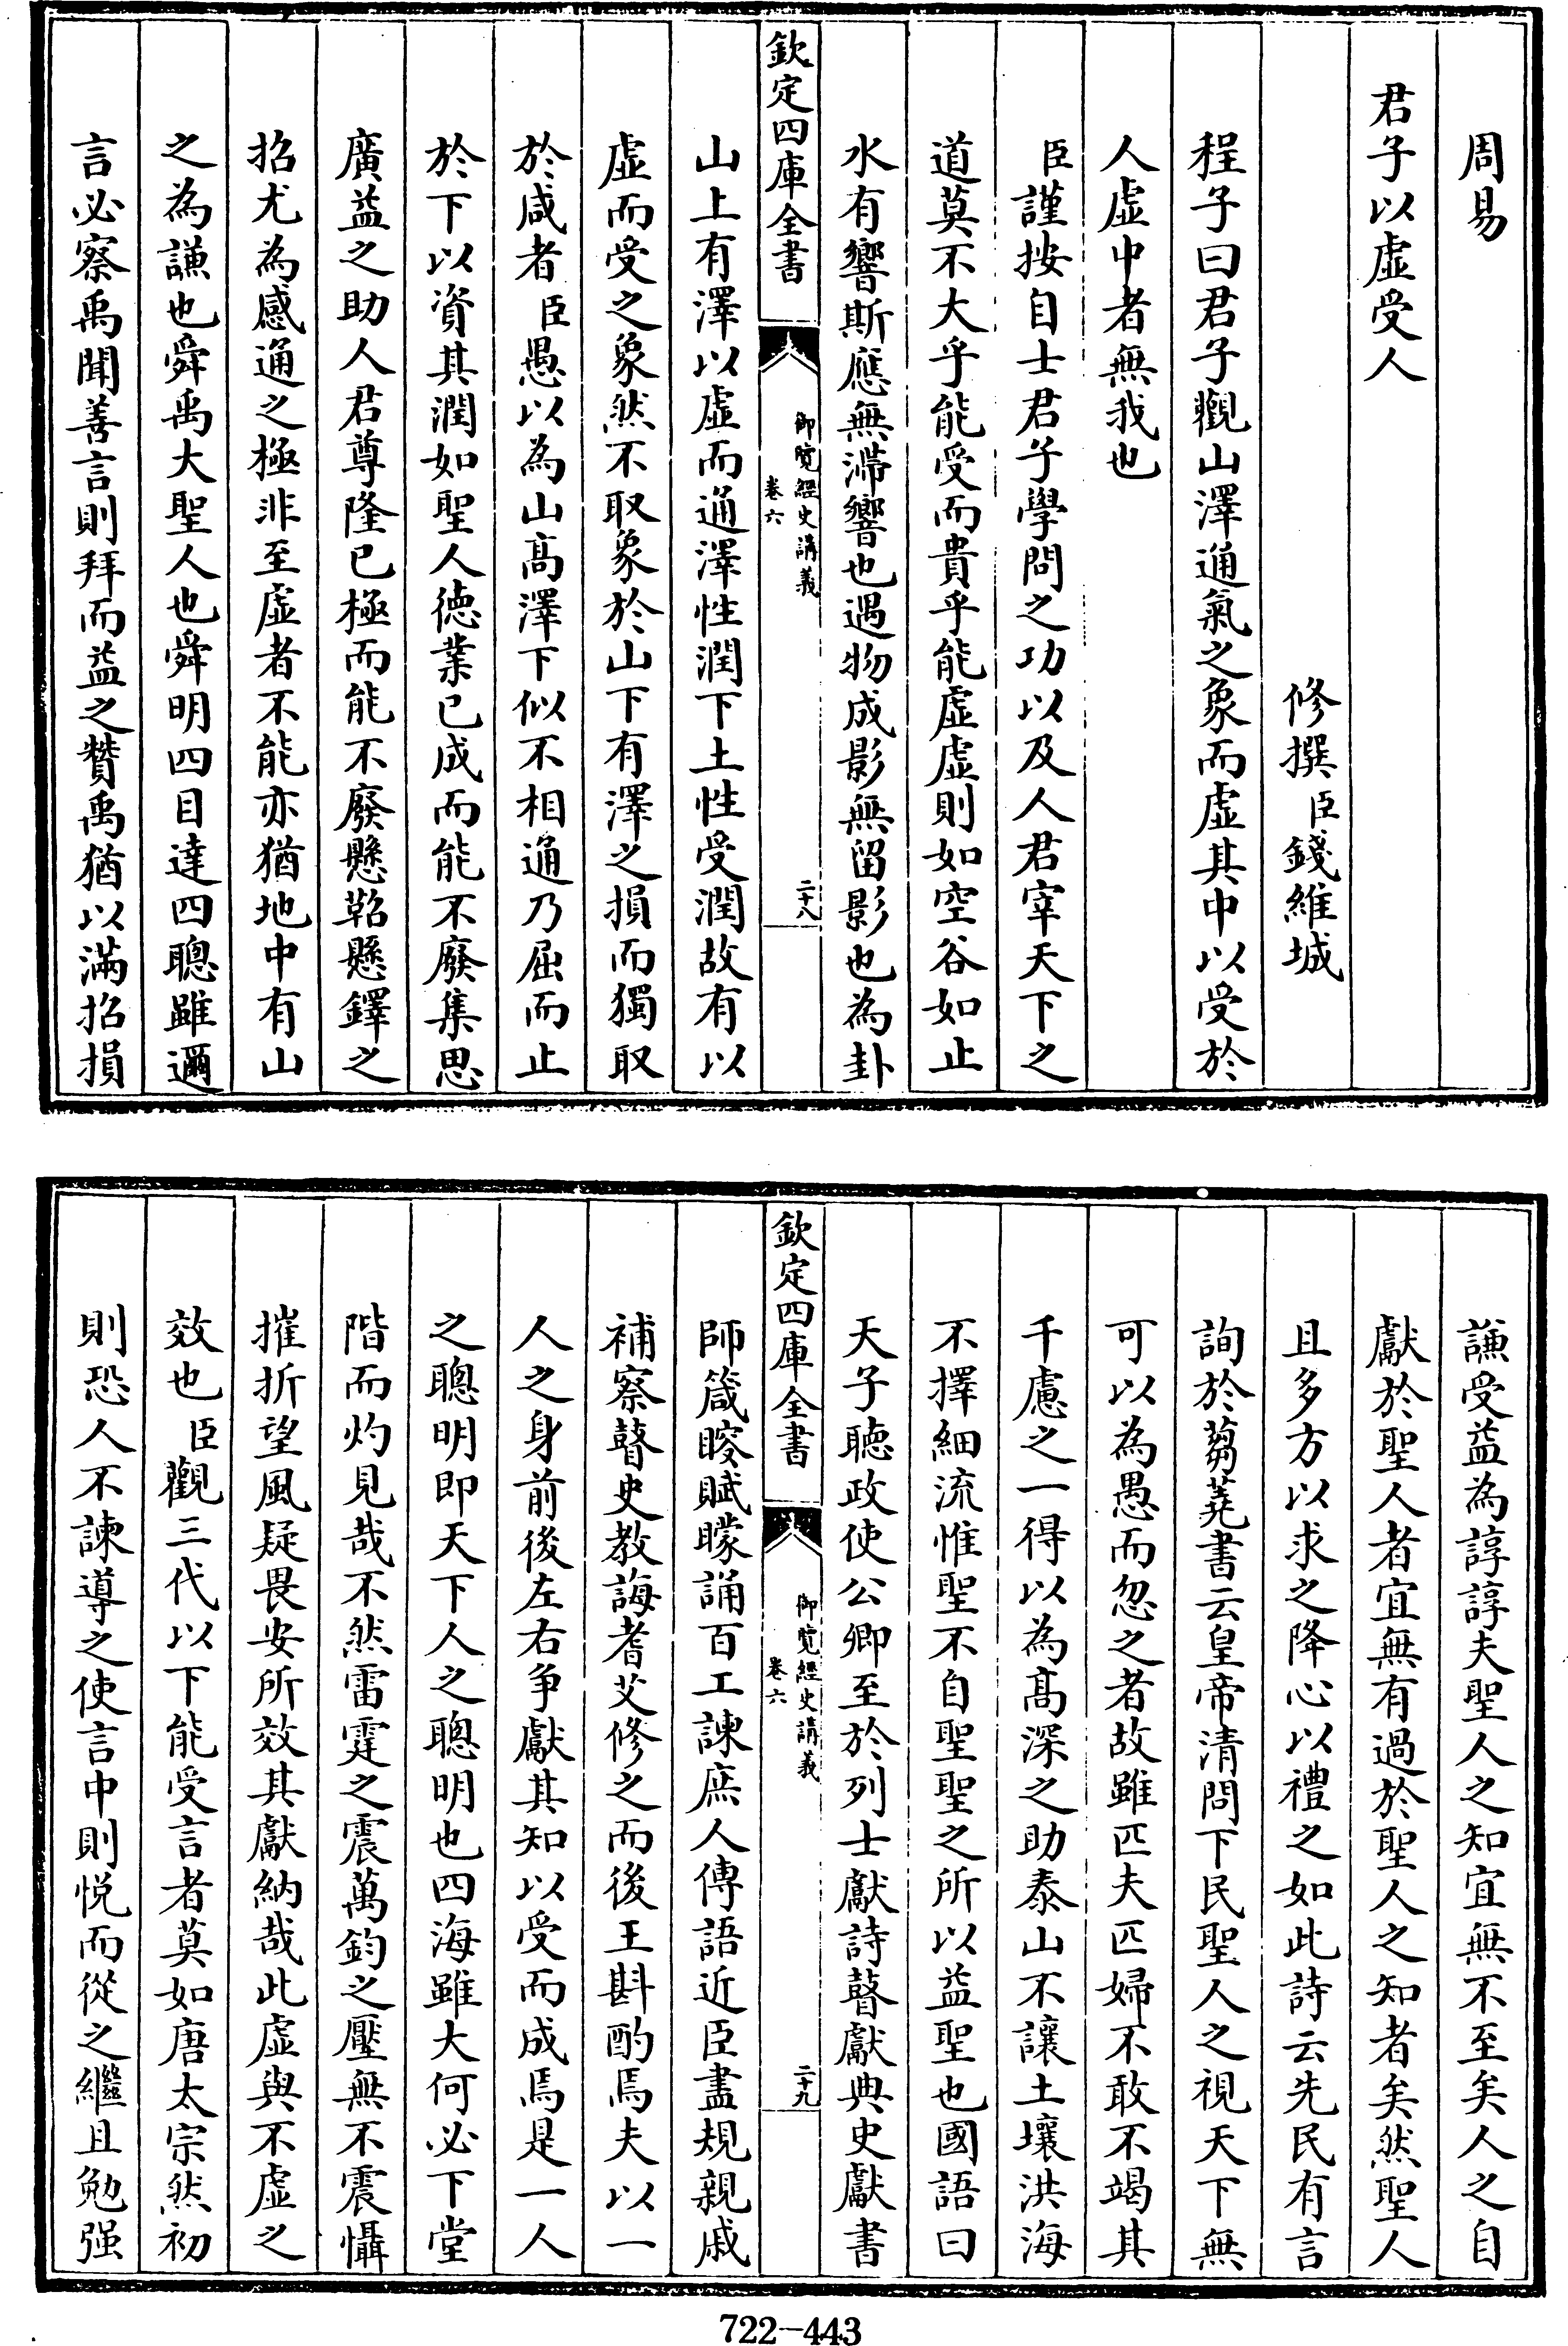 周易
君子以虛受人
修撰臣錢維城
程子曰君子觀山澤通氣之象而虛其中以受於
人虛中者無我也
臣謹按自士君子學問之功以及人君宰天下之
道莫不大乎能受而貴乎能虛虛則如空谷如止
水有響斯應無滯響也遇物成影無留影也為卦
欽定四庫全書
御覽經史講義
卷六
二十八
山上有澤以虛而通澤性潤下土性受潤故有以
虛而受之象然不取象於山下有澤之損而獨取
於咸者臣愚以為山高澤下似不相通乃屈而止
於下以資其潤如聖人德業已成而能不廢集思
廣益之助人君尊隆已極而能不廢懸鞀懸鐸之
招尤為感通之極非至虛者不能亦猶地中有山
之為謙也舜禹大聖人也舜明四目達四聰雖邇
言必察禹聞善言則拜而益之贊禹猶以滿招損
謙受益為諄諄夫聖人之知宜無不至矣人之自
獻於聖人者宜無有過於聖人之知者矣然聖人
且多方以求之降心以禮之如此詩云先民有言
詢於蒭蕘書云皇帝清問下民聖人之視天下無
可以為愚而忽之者故雖匹夫匹婦不敢不竭其
千慮之一得以為高深之助泰山不讓土壤洪海
不擇細流惟聖不自聖聖之所以益聖也國語曰
天子聽政使公卿至於列士獻詩瞽獻典史獻書
欽定四庫全書
御覽經史講義
卷六
二十九
師箴瞍賦矇誦百工諫庶人傳語近臣盡規親戚
補察瞽史教誨耆艾修之而後王斟酌焉夫以一
人之身前後左右爭獻其知以受而成焉是一人
之聰明即天下人之聰明也四海雖大何必下堂
階而灼見哉不然雷霆之震萬鈞之壓無不震懾
摧折望風疑畏安所效其獻納哉此虛與不虛之
效也臣觀三代以下能受言者莫如唐太宗然初
則恐人不諫導之使言中則悅而從之繼且勉强
722-443